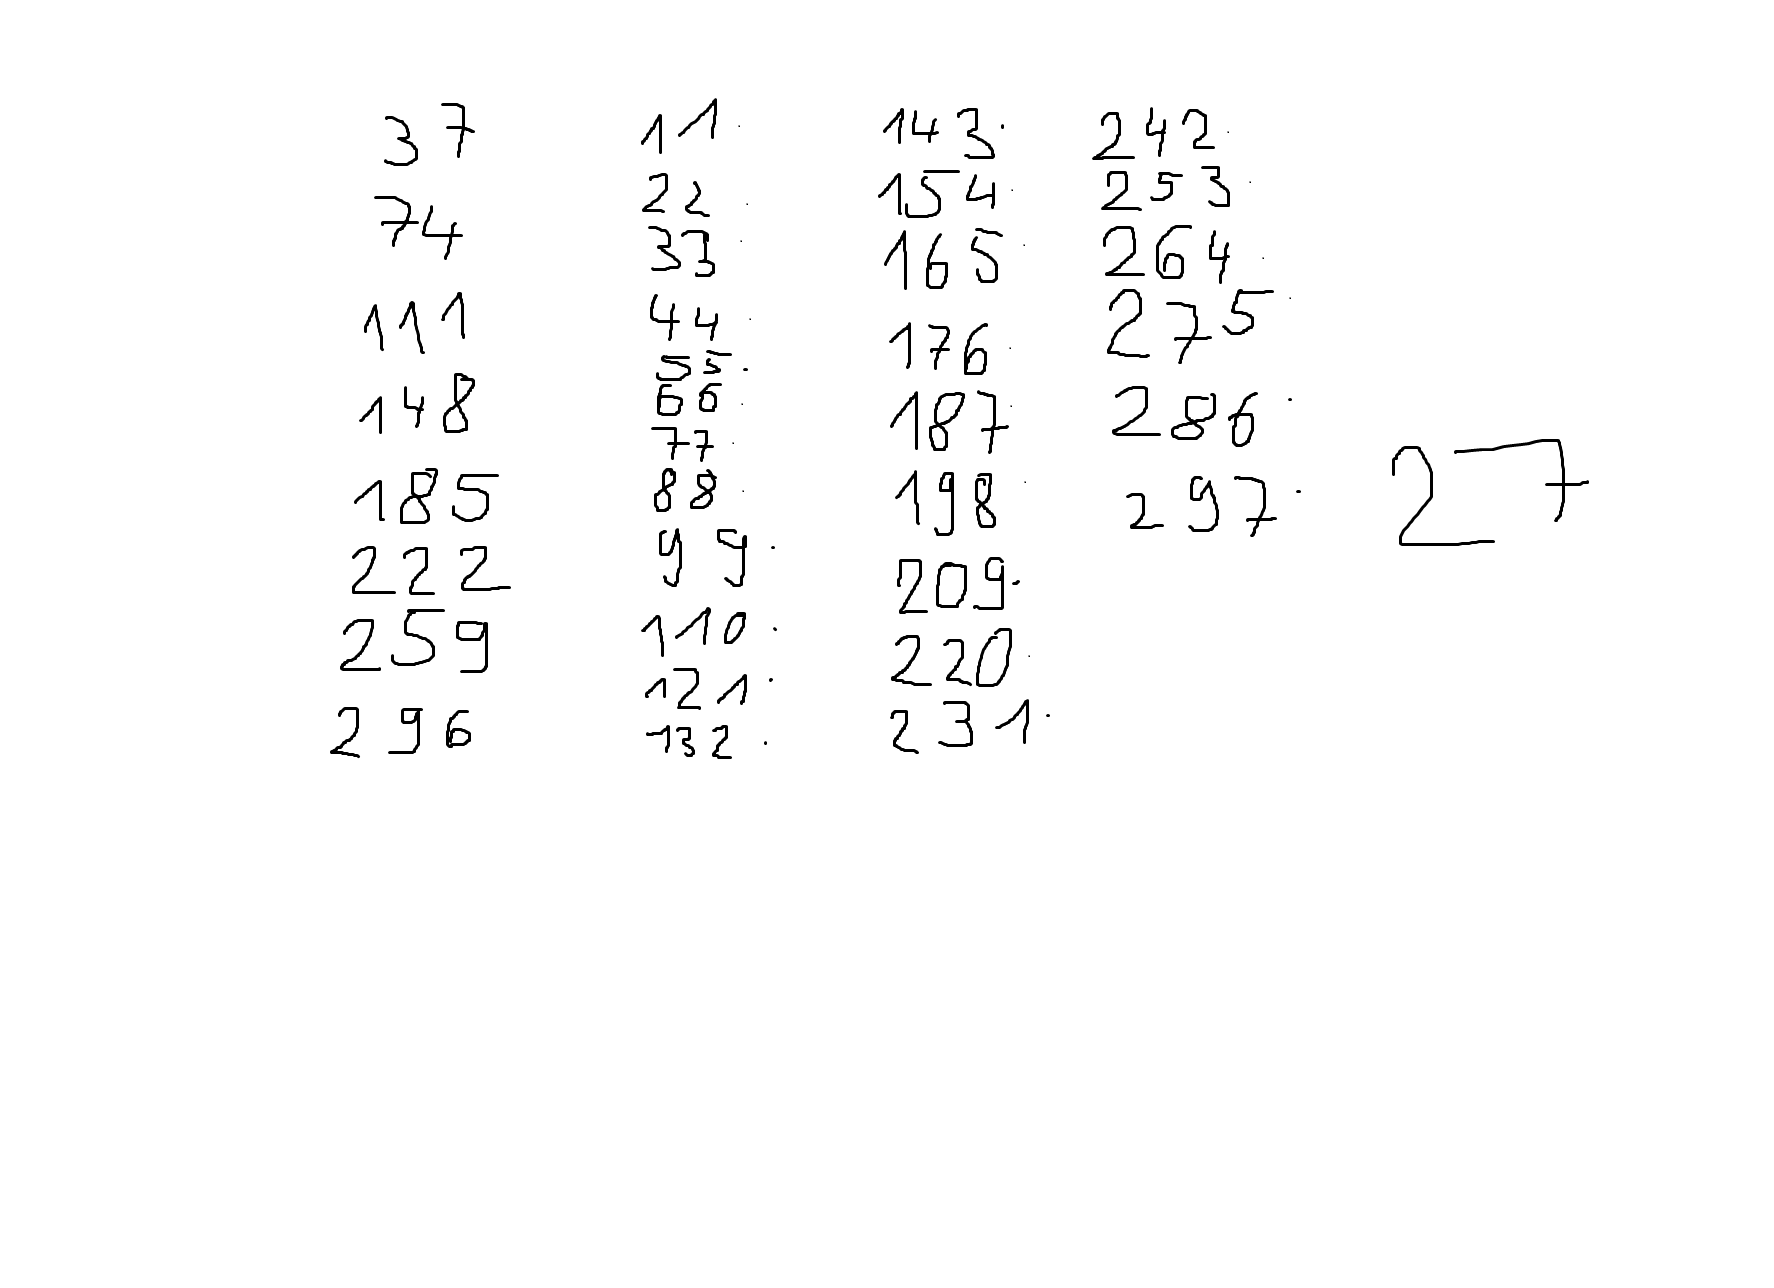 37
74
111
148
185
222
259
296
11.
22.
33.
44.
55.
66.
77.
88.
99.
110.
121.
132.
143.
154.
165.
176.
187.
198.
209.
220.
231.
242.
253.
264.
275.
286.
297.
27